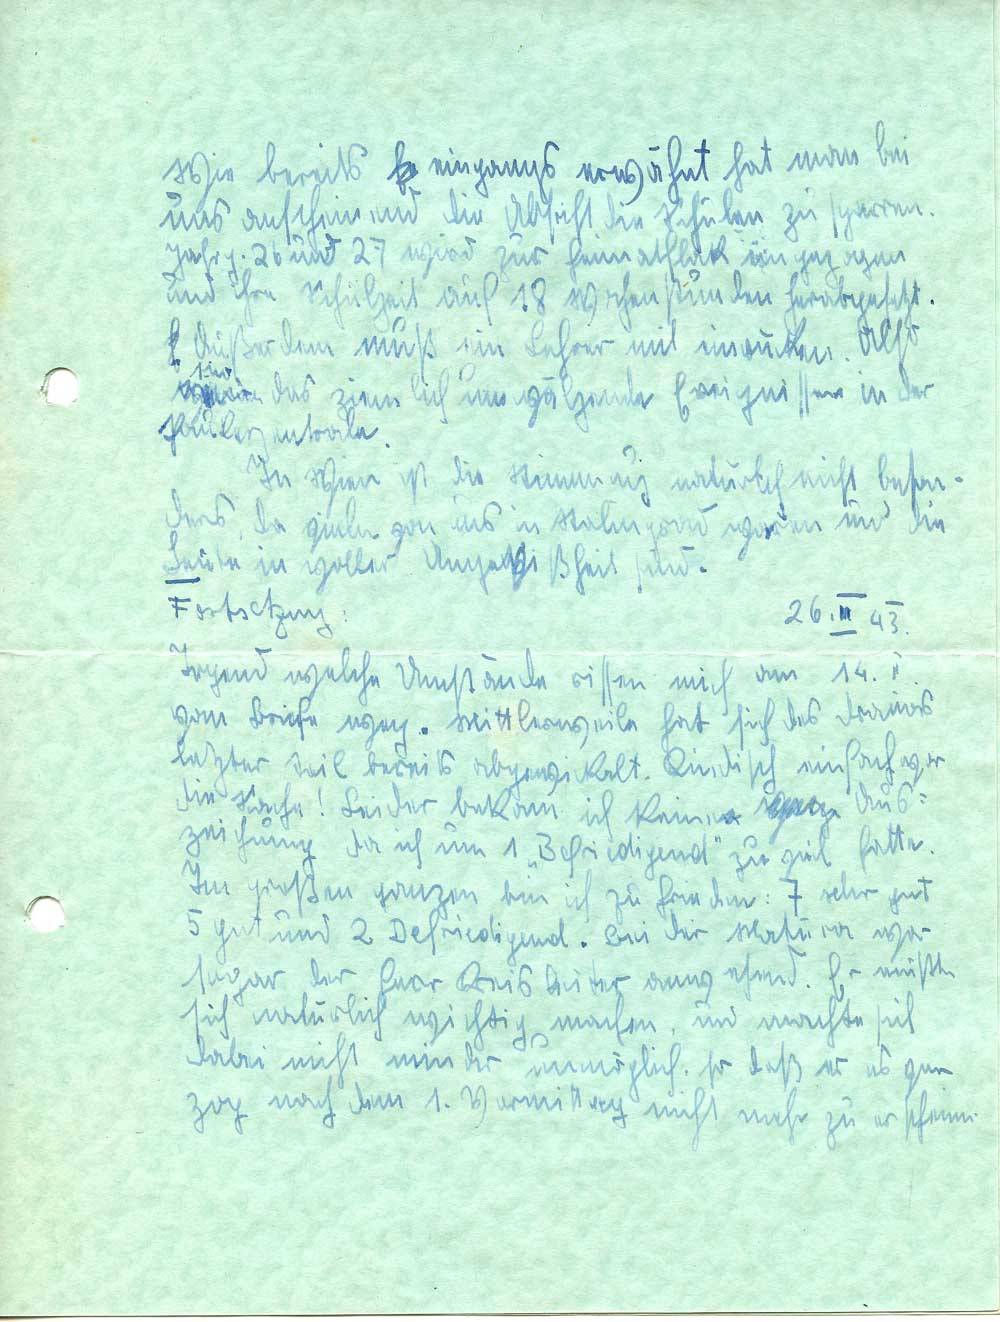 Wie bereits eingangs erwähnt hat man bei
uns anscheinend die Absicht die Schulen zu sperren.
Jahrg. 26 und 27 wird zur Heimatflak eingezogen
und ihre Schulzeit auf 18 Wochenstunden herabgesetzt.
Außerdem muß ein Lehrer mit einrücken. Also
sind das ziemlich umwälzende Ereignisse in der
In Wien ist die Stimmung natürlich nicht beson-
ders, da viele von uns in Stalingrad waren und die
Leute in voller Ungewißheit sind.
Fortsetzung: 26. II 43.
Irgend welche Umstände rissen mich am 14. II.
vom Briefe weg. Mittlerweile hat sich des Dramas
letzter Teil bereits abgewickelt. Kindisch einfach war
die Sache! Leider bekam ich keine Aus=
zeichnung da ich um 1 „Befriedigend" zu viel hatte.
Im großen ganzen bin ich zufrieden: 7 sehr gut
5 gut und 2 Befriedigend. Bei der Matura war
sogar der Herr Kreisleiter anwesend. Er mußte
sich natürlich wichtig machen, und machte sich
dabei nicht minder unmöglich. so daß er es vor
zog nach dem 1. Vormittag nicht mehr zu erscheinen